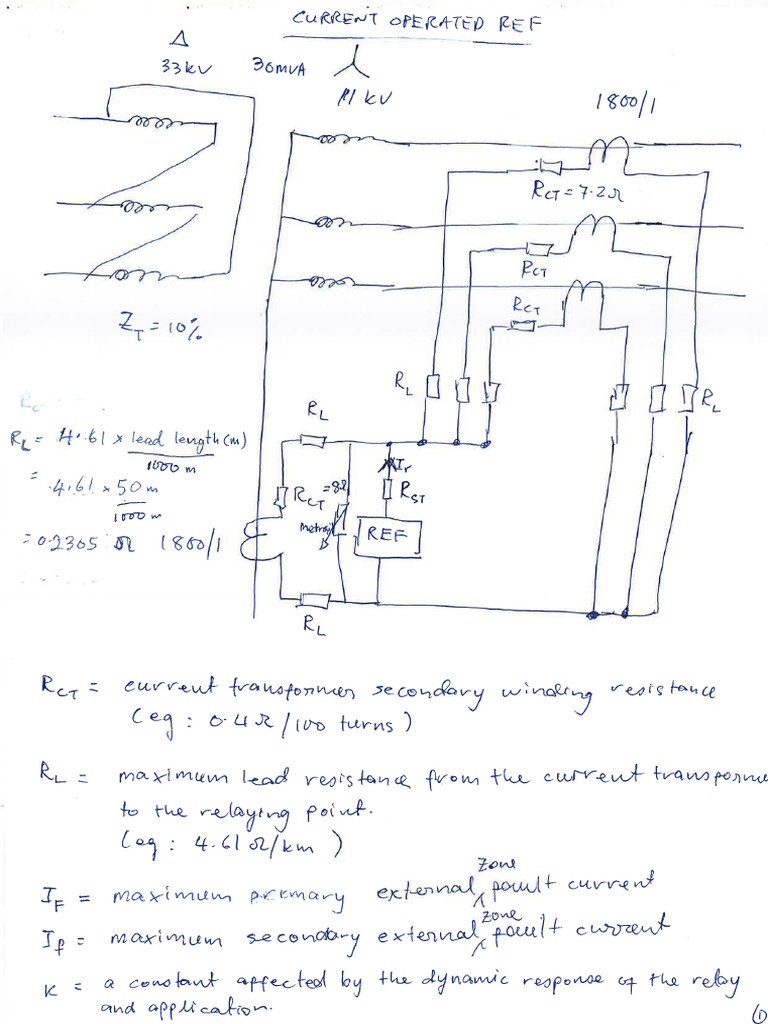 CURRENT OPERATED REF
Δ
33kV 30MVA
11 kV
1800/1
RCT = 7.2Ω
RCT
RCT
ZT = 10%
RL
RL
RL
RL = 4.61 x lead length(m)
1000 m
= 4.61 x 50 m
1000 m
= 0.2305 Ω 1800/1
Ir
RCT = 8Ω
RST
metrosil
REF
RL
RCT = current transformer secondary winding resistance
(eg : 0.4Ω/100 turns)
RL = maximum lead resistance from the current transformer
to the relaying point.
(eg : 4.61Ω/km)
zone
IF = maximum primary external fault current
zone
If = maximum secondary external fault current
K = a constant affected by the dynamic response of the relay
and application.
①